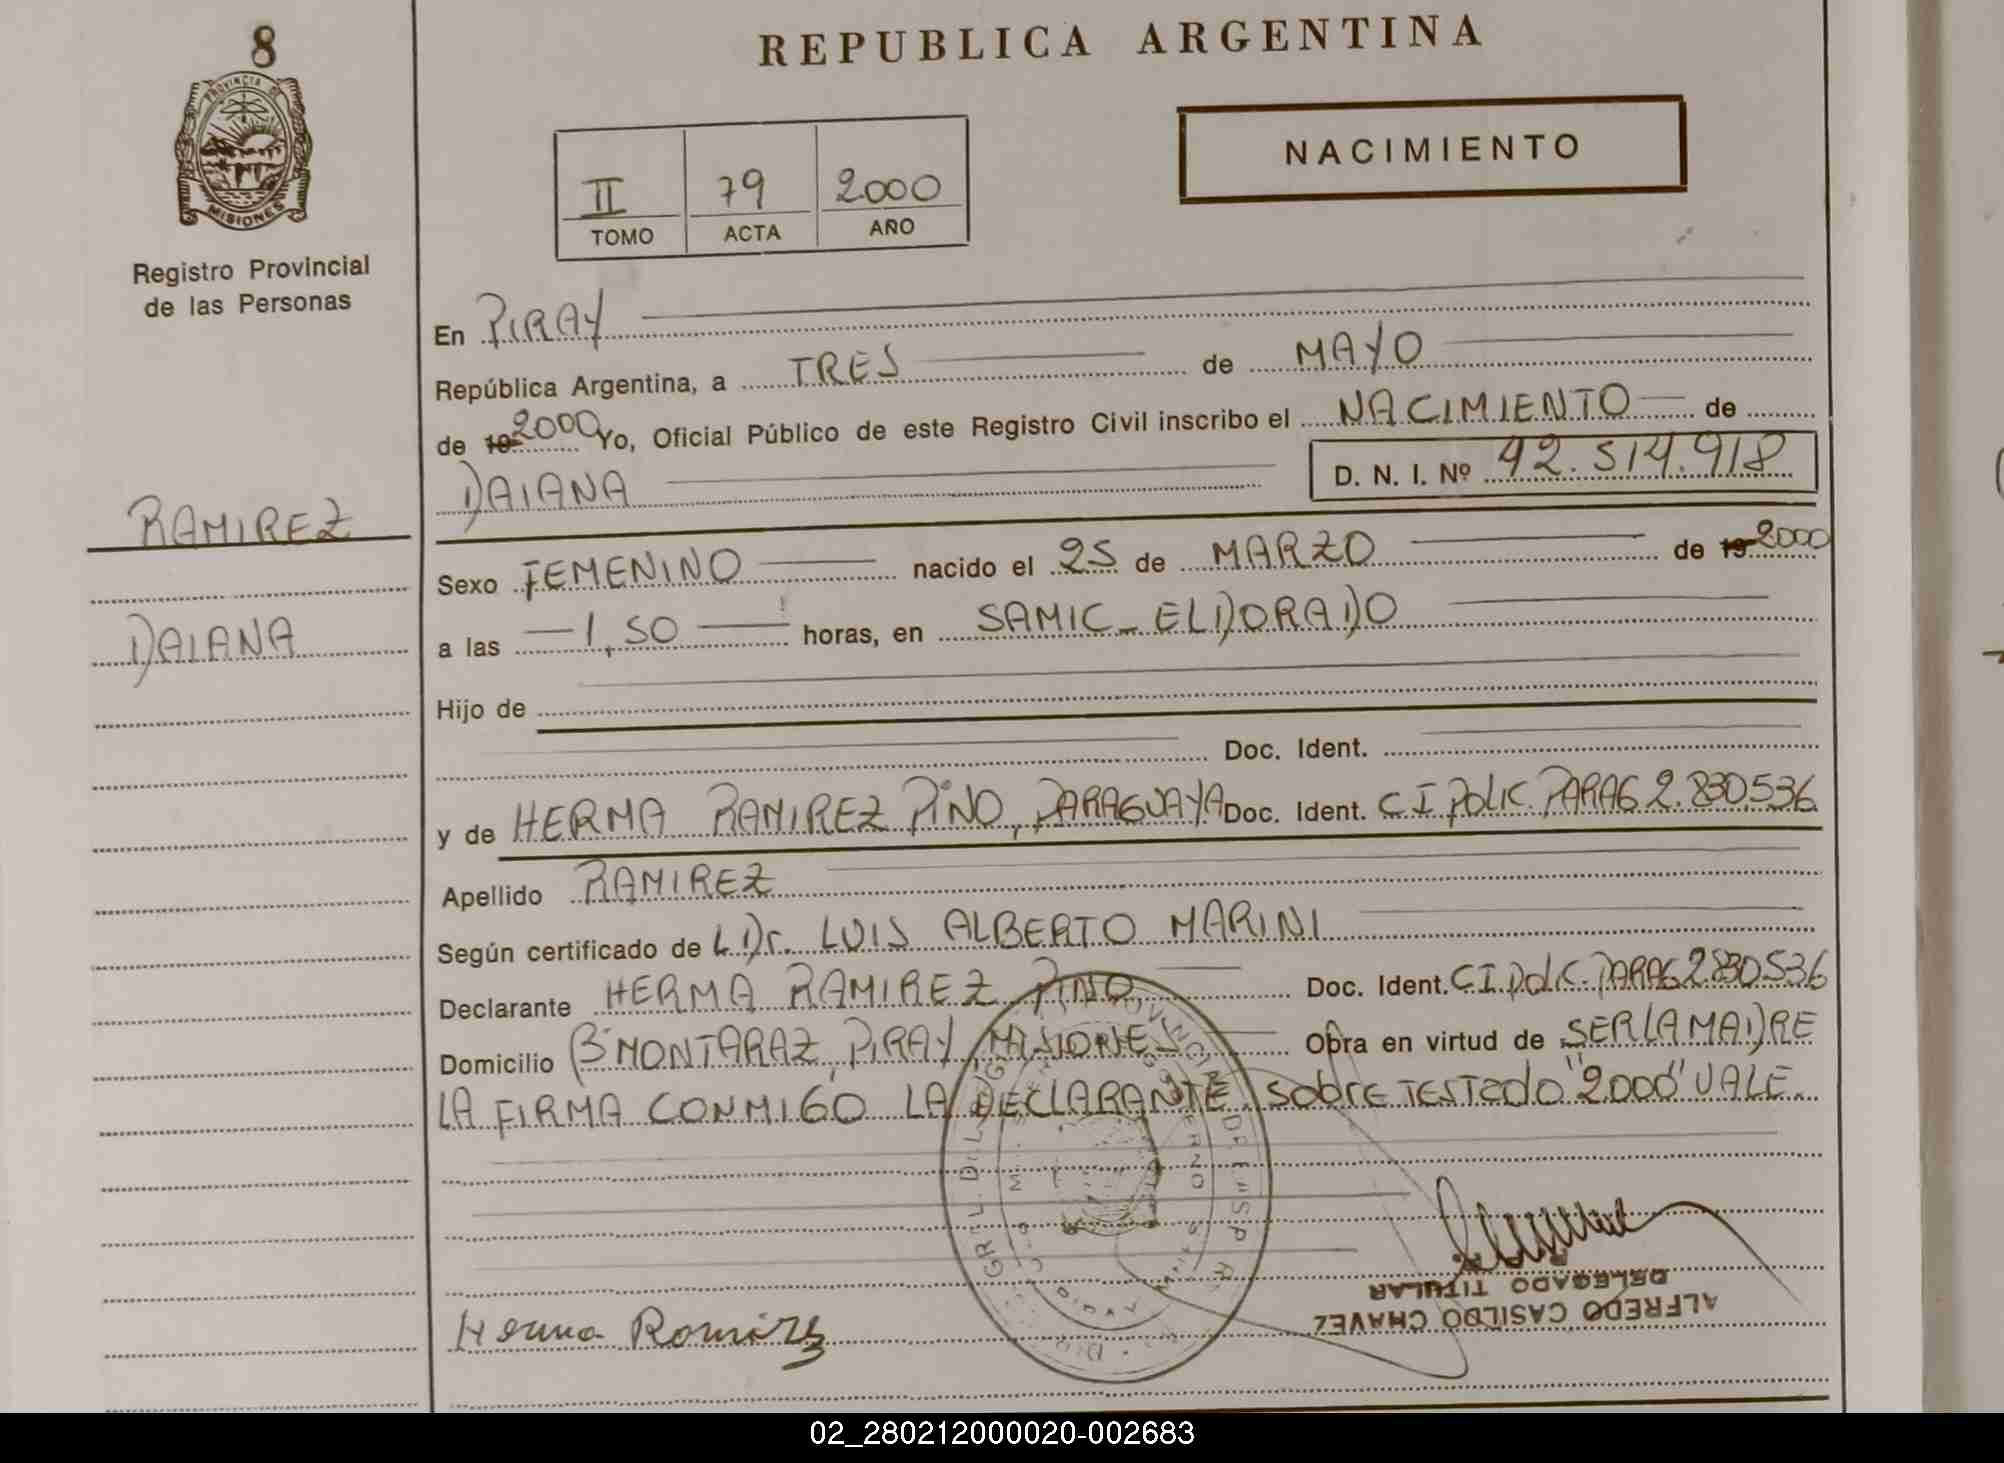 8
REPUBLICA ARGENTINA
PROVINCIA DE
MISIONES
Registro Provincial
de las Personas
NACIMIENTO
II 79 2000
TOMO ACTA AÑO
En PIRAY
República Argentina, a TRES de MAYO
de 19 2000 Yo, Oficial Público de este Registro Civil inscribo el NACIMIENTO de
DAIANA D. N. I. Nº 42.514.918
RAMIREZ
DAIANA
Sexo FEMENINO nacido el 25 de MARZO de 19 2000
a las 1,50 horas, en SAMIC_ELDORADO
Hijo de
Doc. Ident.
y de HERMA RAMIREZ PINO, PARAGUAYA Doc. Ident. CI POLIC. PARAG 2.830.536
Apellido RAMIREZ
Según certificado de L Dr. LUIS ALBERTO MARINI
Declarante HERMA RAMIREZ PINO, Doc. Ident. CI Polic. PARAG 2830536
Domicilio Bº MONTARAZ, PIRAY, MISIONES Obra en virtud de SER LA MADRE
LA FIRMA CONMIGO LA DECLARANTE. Sobre TESTEDO "2000" VALE.
Herma Ramirez
ALFREDO CASILDO CHAVEZ
DELEGADO TITULAR
02_280212000020-002683